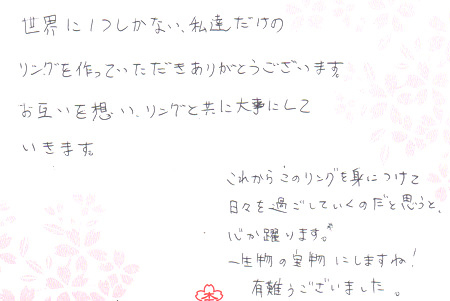 世界に1つしかない、私達だけの
リングを作っていただきありがとうございます。
お互いを想い、リングと共に大事にして
いきます。
これからこのリングを身につけて
日々を過ごしていくのだと思うと、
心が躍ります。
一生物の宝物にしますね!
有難うございました。